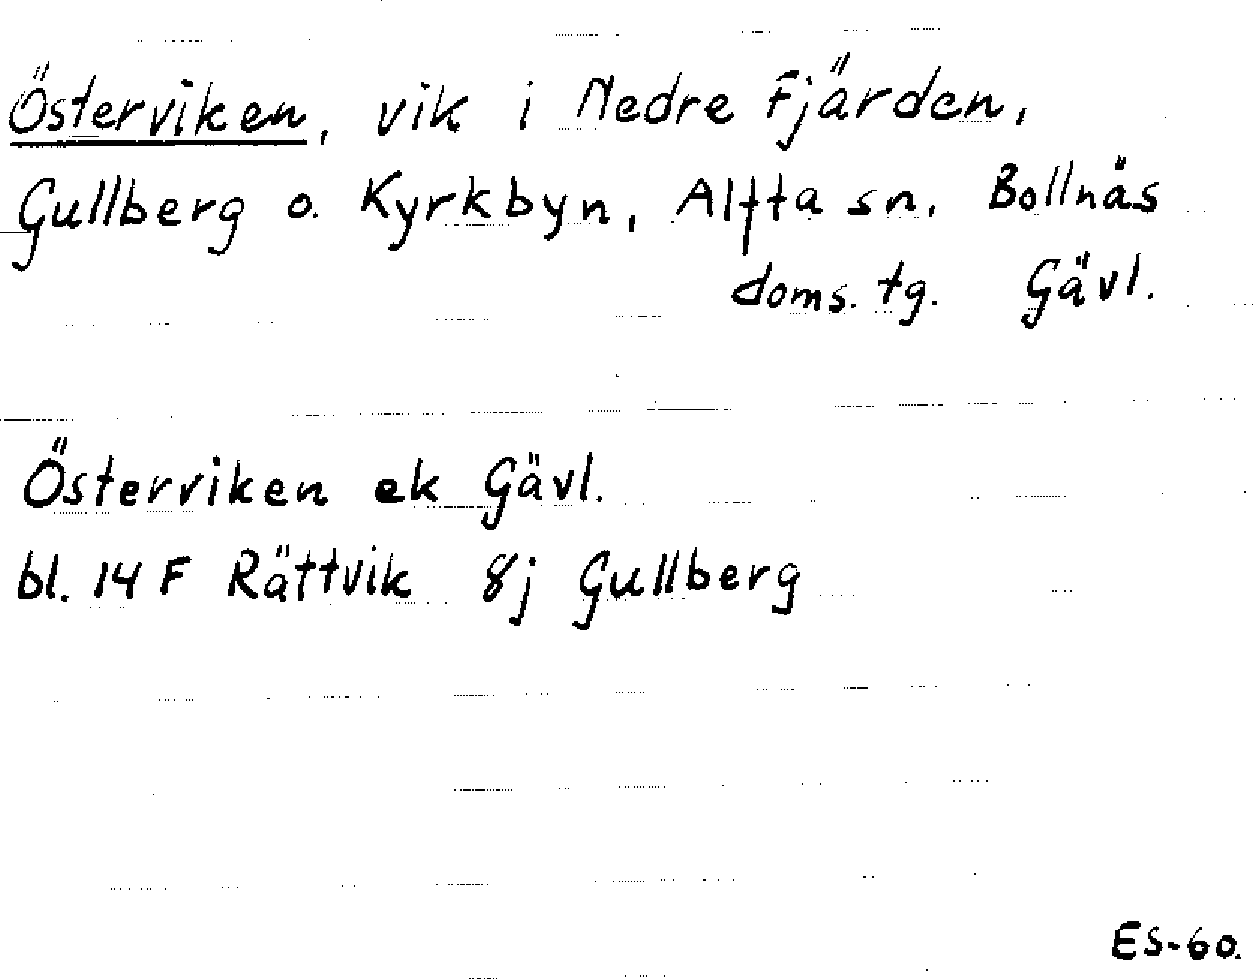 Österviken, vik i Nedre Fjärden,
Gullberg o. Kyrkbyn, Alfta sn. Bollnäs
doms. tg. Gävl.
Österviken ek Gävl.
bl. 14 F Rättvik 8j Gullberg
ES-60.